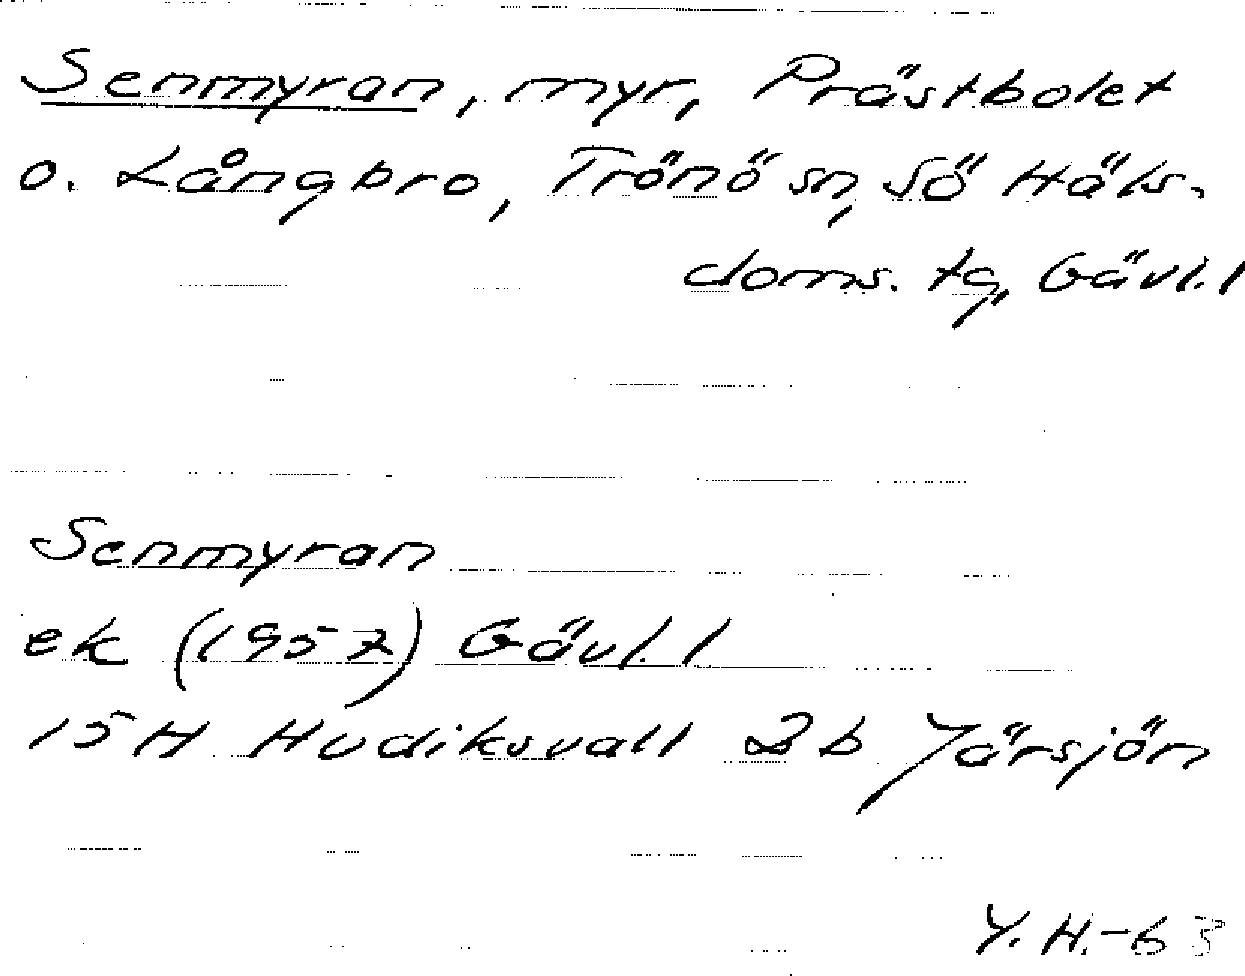 Senmyran, myr, Prästbolet
o. Långbro, Trönö sn, Sö Häls.
doms. tg, Gävl. l
Senmyran
ek (1957) Gävl. l
15 H Hudiksvall 2 b Järsjön
Y. H.-63